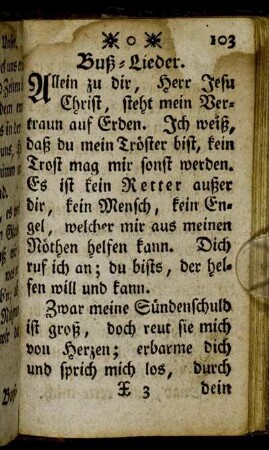 103
Buß-Lieder.
Allein zu dir, Herr Jesu
Christ, steht mein Ver-
traun auf Erden. Ich weiß,
daß du mein Tröster bist, kein
Trost mag mir sonst werden.
Es ist kein Retter außer
dir, kein Mensch, kein En-
gel, welcher mir aus meinen
Nöthen helfen kann. Dich
ruf ich an; du bists, der hel-
fen will und kann.
Zwar meine Sündenschuld
ist groß, doch reut sie mich
von Herzen; erbarme dich
und sprich mich los, durch
X 3 dein